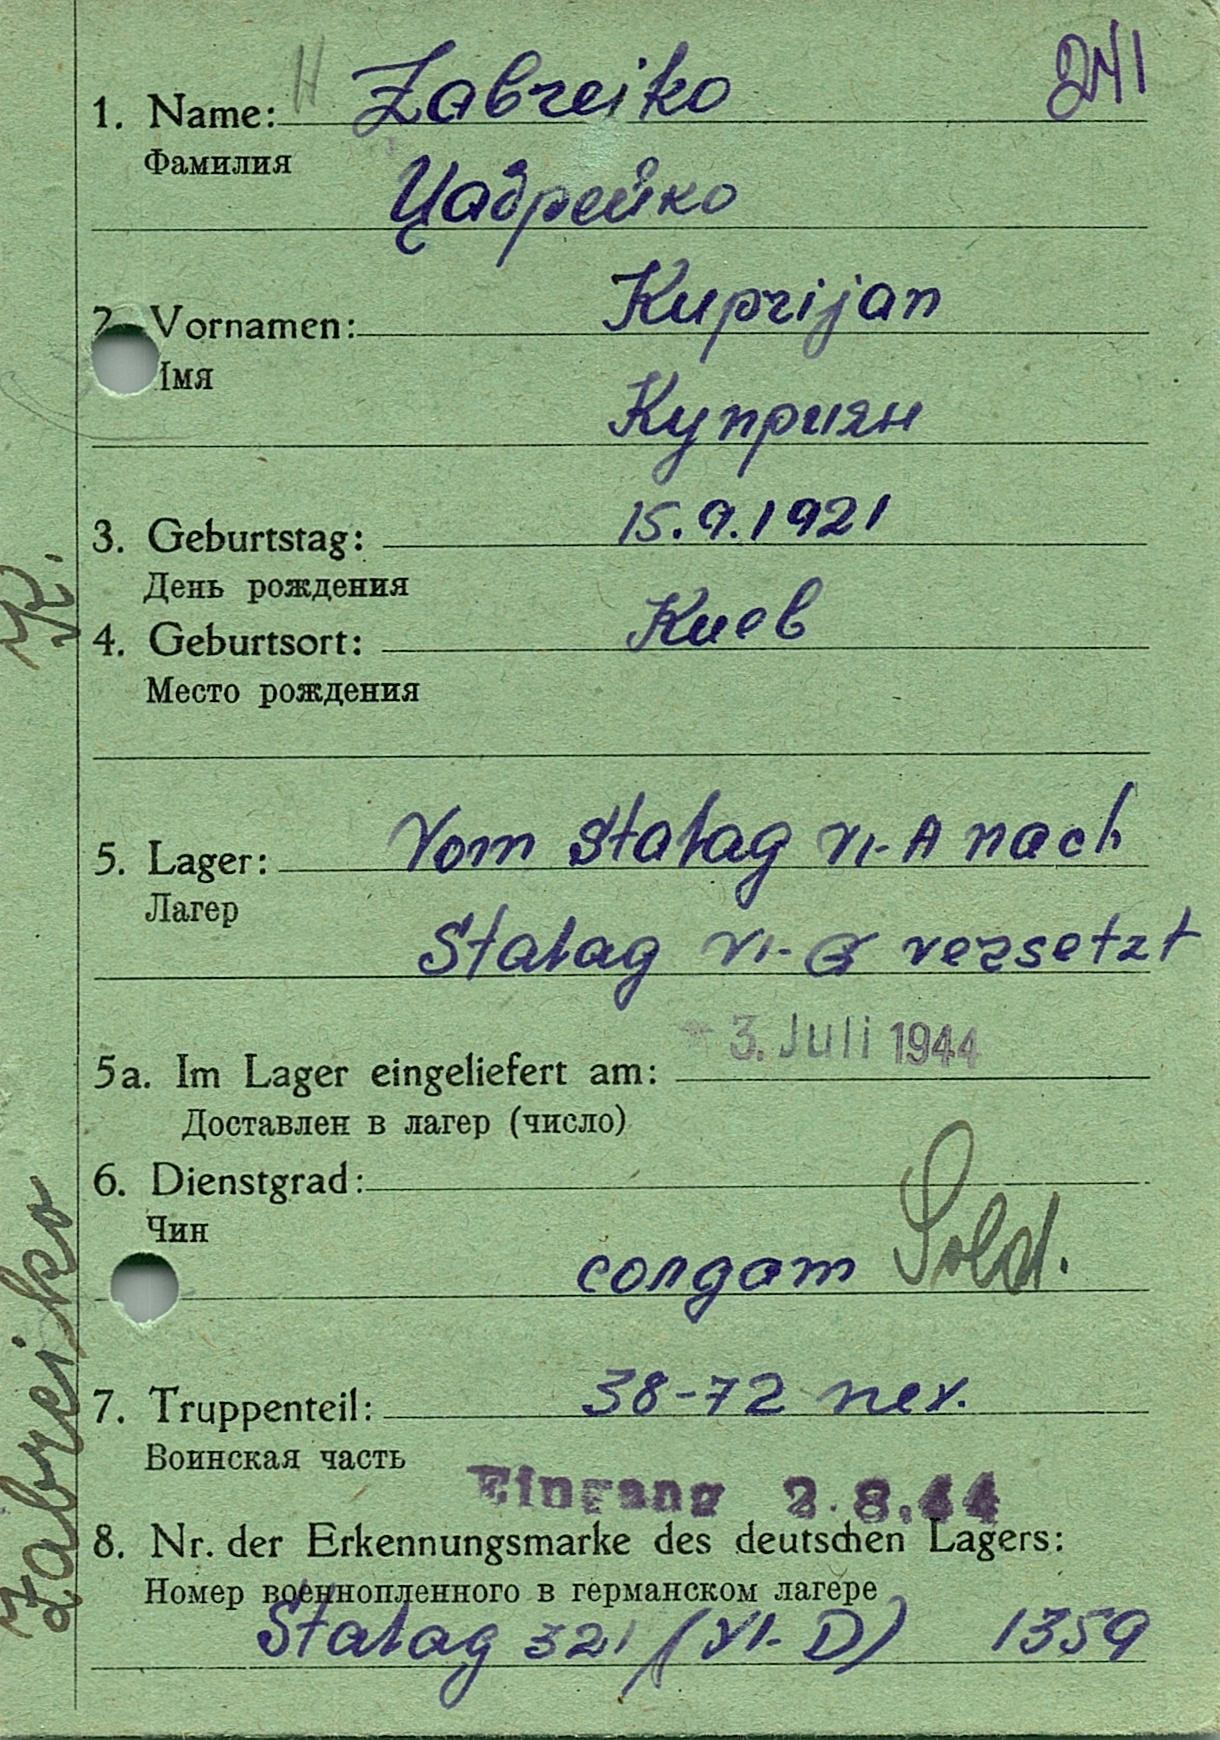 H Zabreiko 241
1. Name:
Фамилия
Цабрейко
Kuprijan
2. Vornamen:
Имя
Куприян
3. Geburtstag: 15.9.1921
День рождения
4. Geburtsort: Киев
Место рождения
5. Lager: Vom Stalag VI-A nach
Лагер
Stalag VI-G versetzt
3. Juli 1944
5a. Im Lager eingeliefert am:
Доставлен в лагер (число)
6. Dienstgrad:
Чин
солдат Sold.
7. Truppenteil: 38-72
Воинская часть
Eingang 2.8.44
8. Nr. der Erkennungsmarke des deutschen Lagers:
Номер военнопленного в германском лагере
Stalag 321 (VI-D) 1359
Zabreiko K.